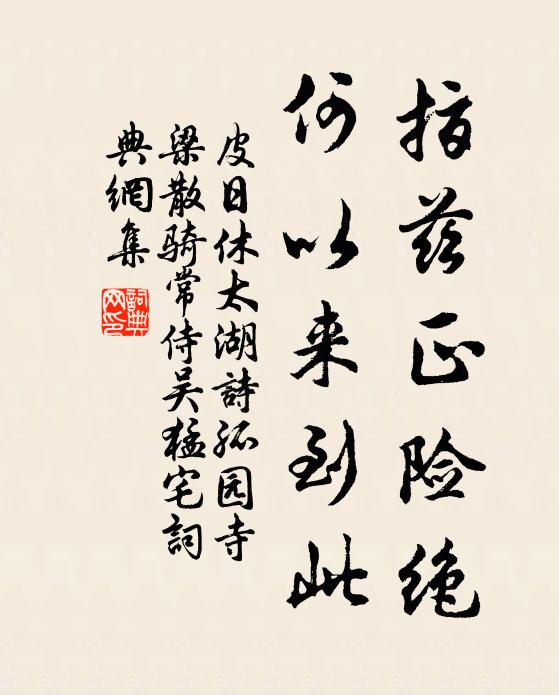 指兹正险绝
何以来到此
皮日休太湖詩孤园寺
梁散骑常侍吴猛宅詞
典網集
詞典网印